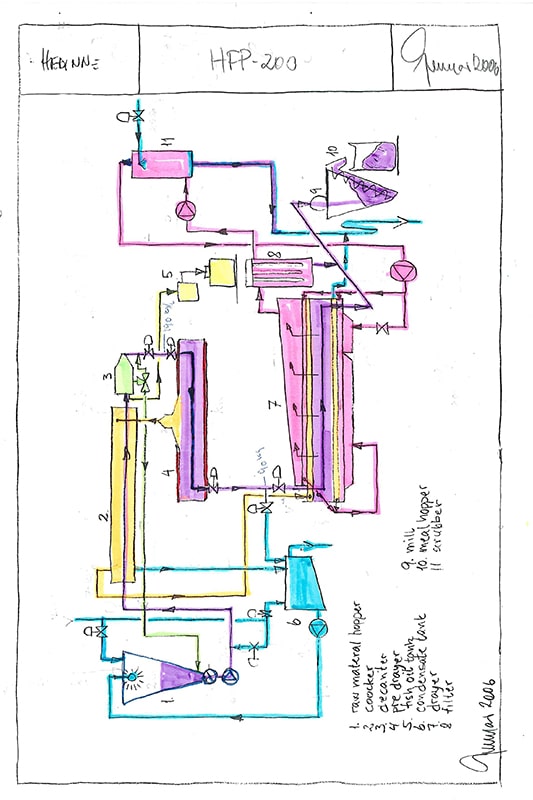 HEDINN=
HFP-200
Gunnar 2006
11
10
9
8
5
90°
3
7
4
90°
2
6
1
1. raw material hopper
2. coocker
3. decanter
4 pre drayer
5. fish oil tank
6. condensate tank
7. drayer
8 filter
9. mill
10. meal hopper
11 scrubber
Gunnar 2006